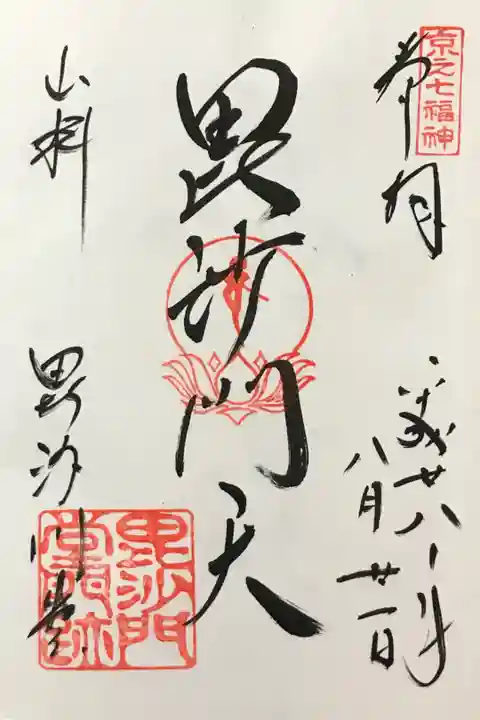 京之七福神
奉拝
平成廿八年
八月廿一日
毘沙門天
山科
毘沙門堂
毘沙門堂門跡